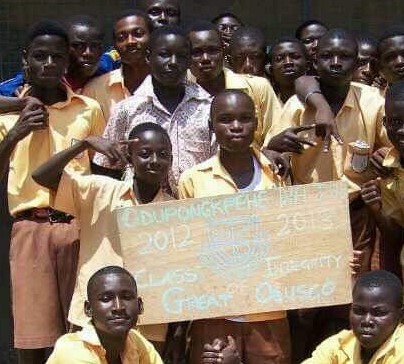 ODUPONGKPEHE
2012 2013
CLASS OF INTEGRITY
GREAT OBUSCO